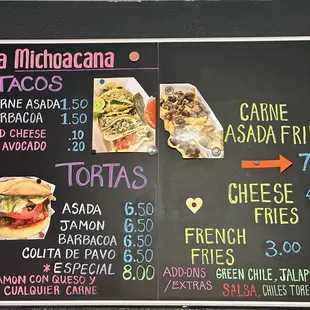 a Michoacana
TACOS
RNE ASADA 1.50
RBACOA 1.50
D CHEESE .10
AVOCADO .20
TORTAS
ASADA 6.50
JAMON 6.50
BARBACOA 6.50
COLITA DE PAVO 6.50
*ESPECIAL 8.00
AMON CON QUESO Y
CUALQUIER CARNE
CARNE
ASADA FRI
7
CHEESE
FRIES
FRENCH
FRIES 3.00
ADD-ONS
/EXTRAS
GREEN CHILE, JALAP
SALSA, CHILES TORE